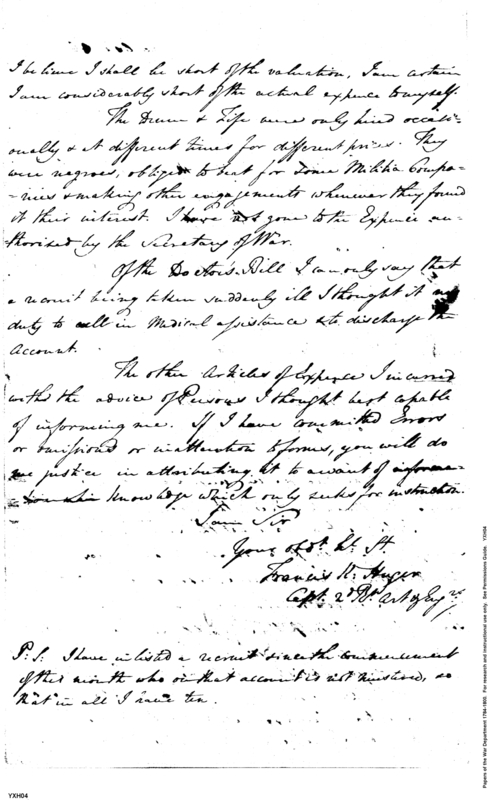 I believe I shall be short of the valuation, I am certain
I am considerably short of the actual expence to myself.
The Drum & Fife were only hired occasi-
onally & at different times for different prices. They
were negroes, obliged to beat for some Militia Compa-
-nies & making other engagements whenever they found
it their interest. I have not gone to the Expence au-
thorised by the Secretary of War.
Of the Doctors Bill I can only say that
a recruit being taken suddenly ill I thought it my
duty to call in Medical assistance & to discharge the
Account.
The other Articles of Expence I incurred
with the advice of Persons I thought best capable
of informing me. If I have committed Errors
or omissions or inattention to forms, you will do
me justice in attributing it to a want of
knowledge which only seeks for instruction.
I am Sir
Your obdt. ht. St.
Francis K. Huger
Capt. 2d Rt. Art & Engrs.
P.S. I have inlisted a recruit since the commencement
of this month who on that account is not mustered, so
that in all I have ten.
YXH04
Papers of the War Department 1784-1800. For research and instructional use only. See Permissions Guide. YXH04